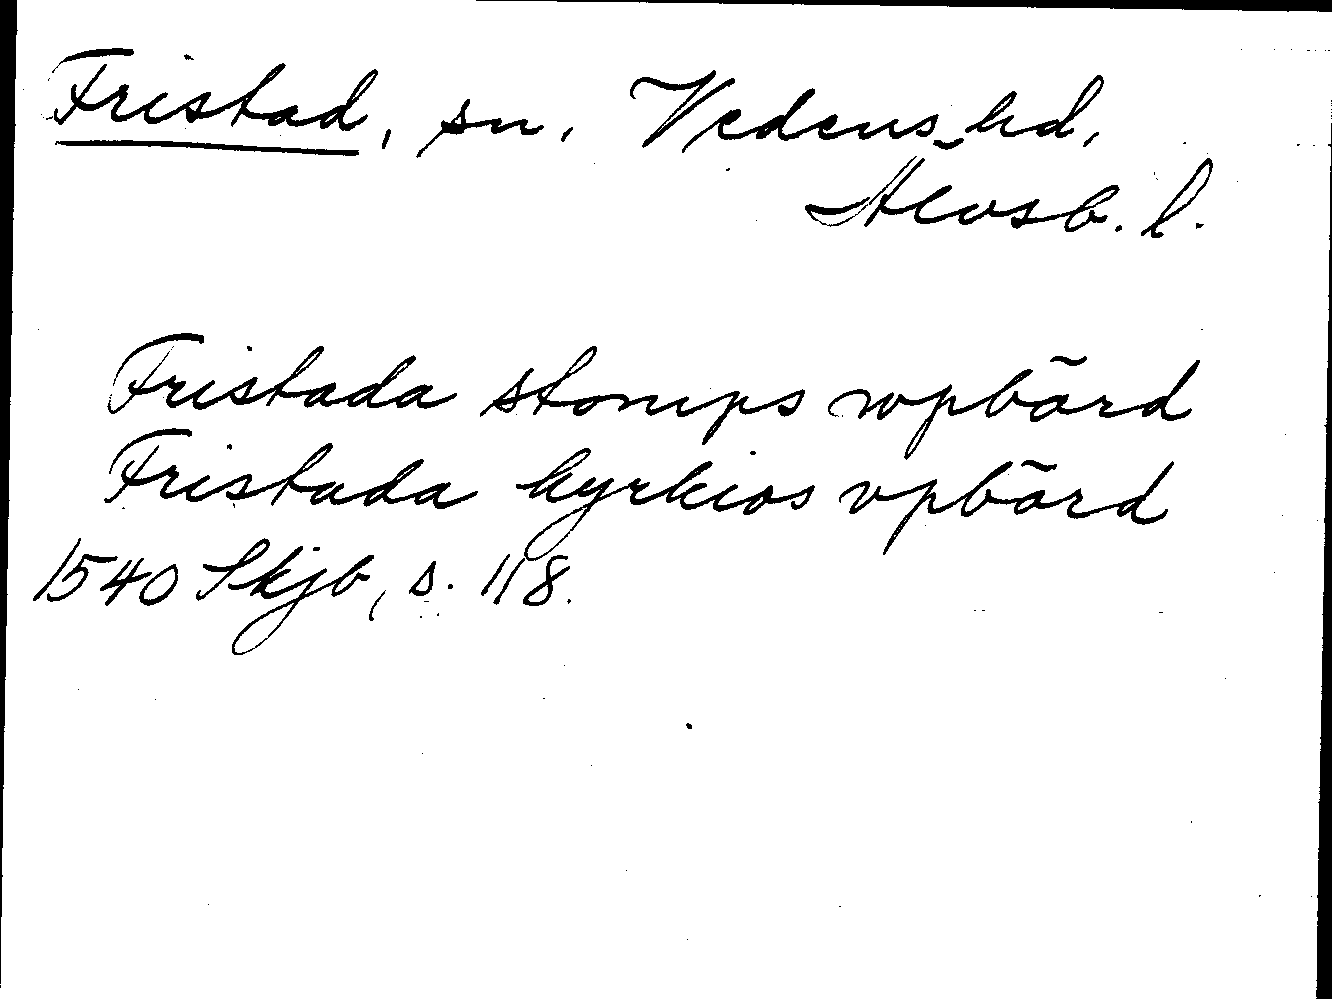 Fristad, sn. Vedens hd,
Älvsb. l.
Fristada stomps wpbörd
Fristada kyrkios vpbörd
1540 Skjb, s. 118.